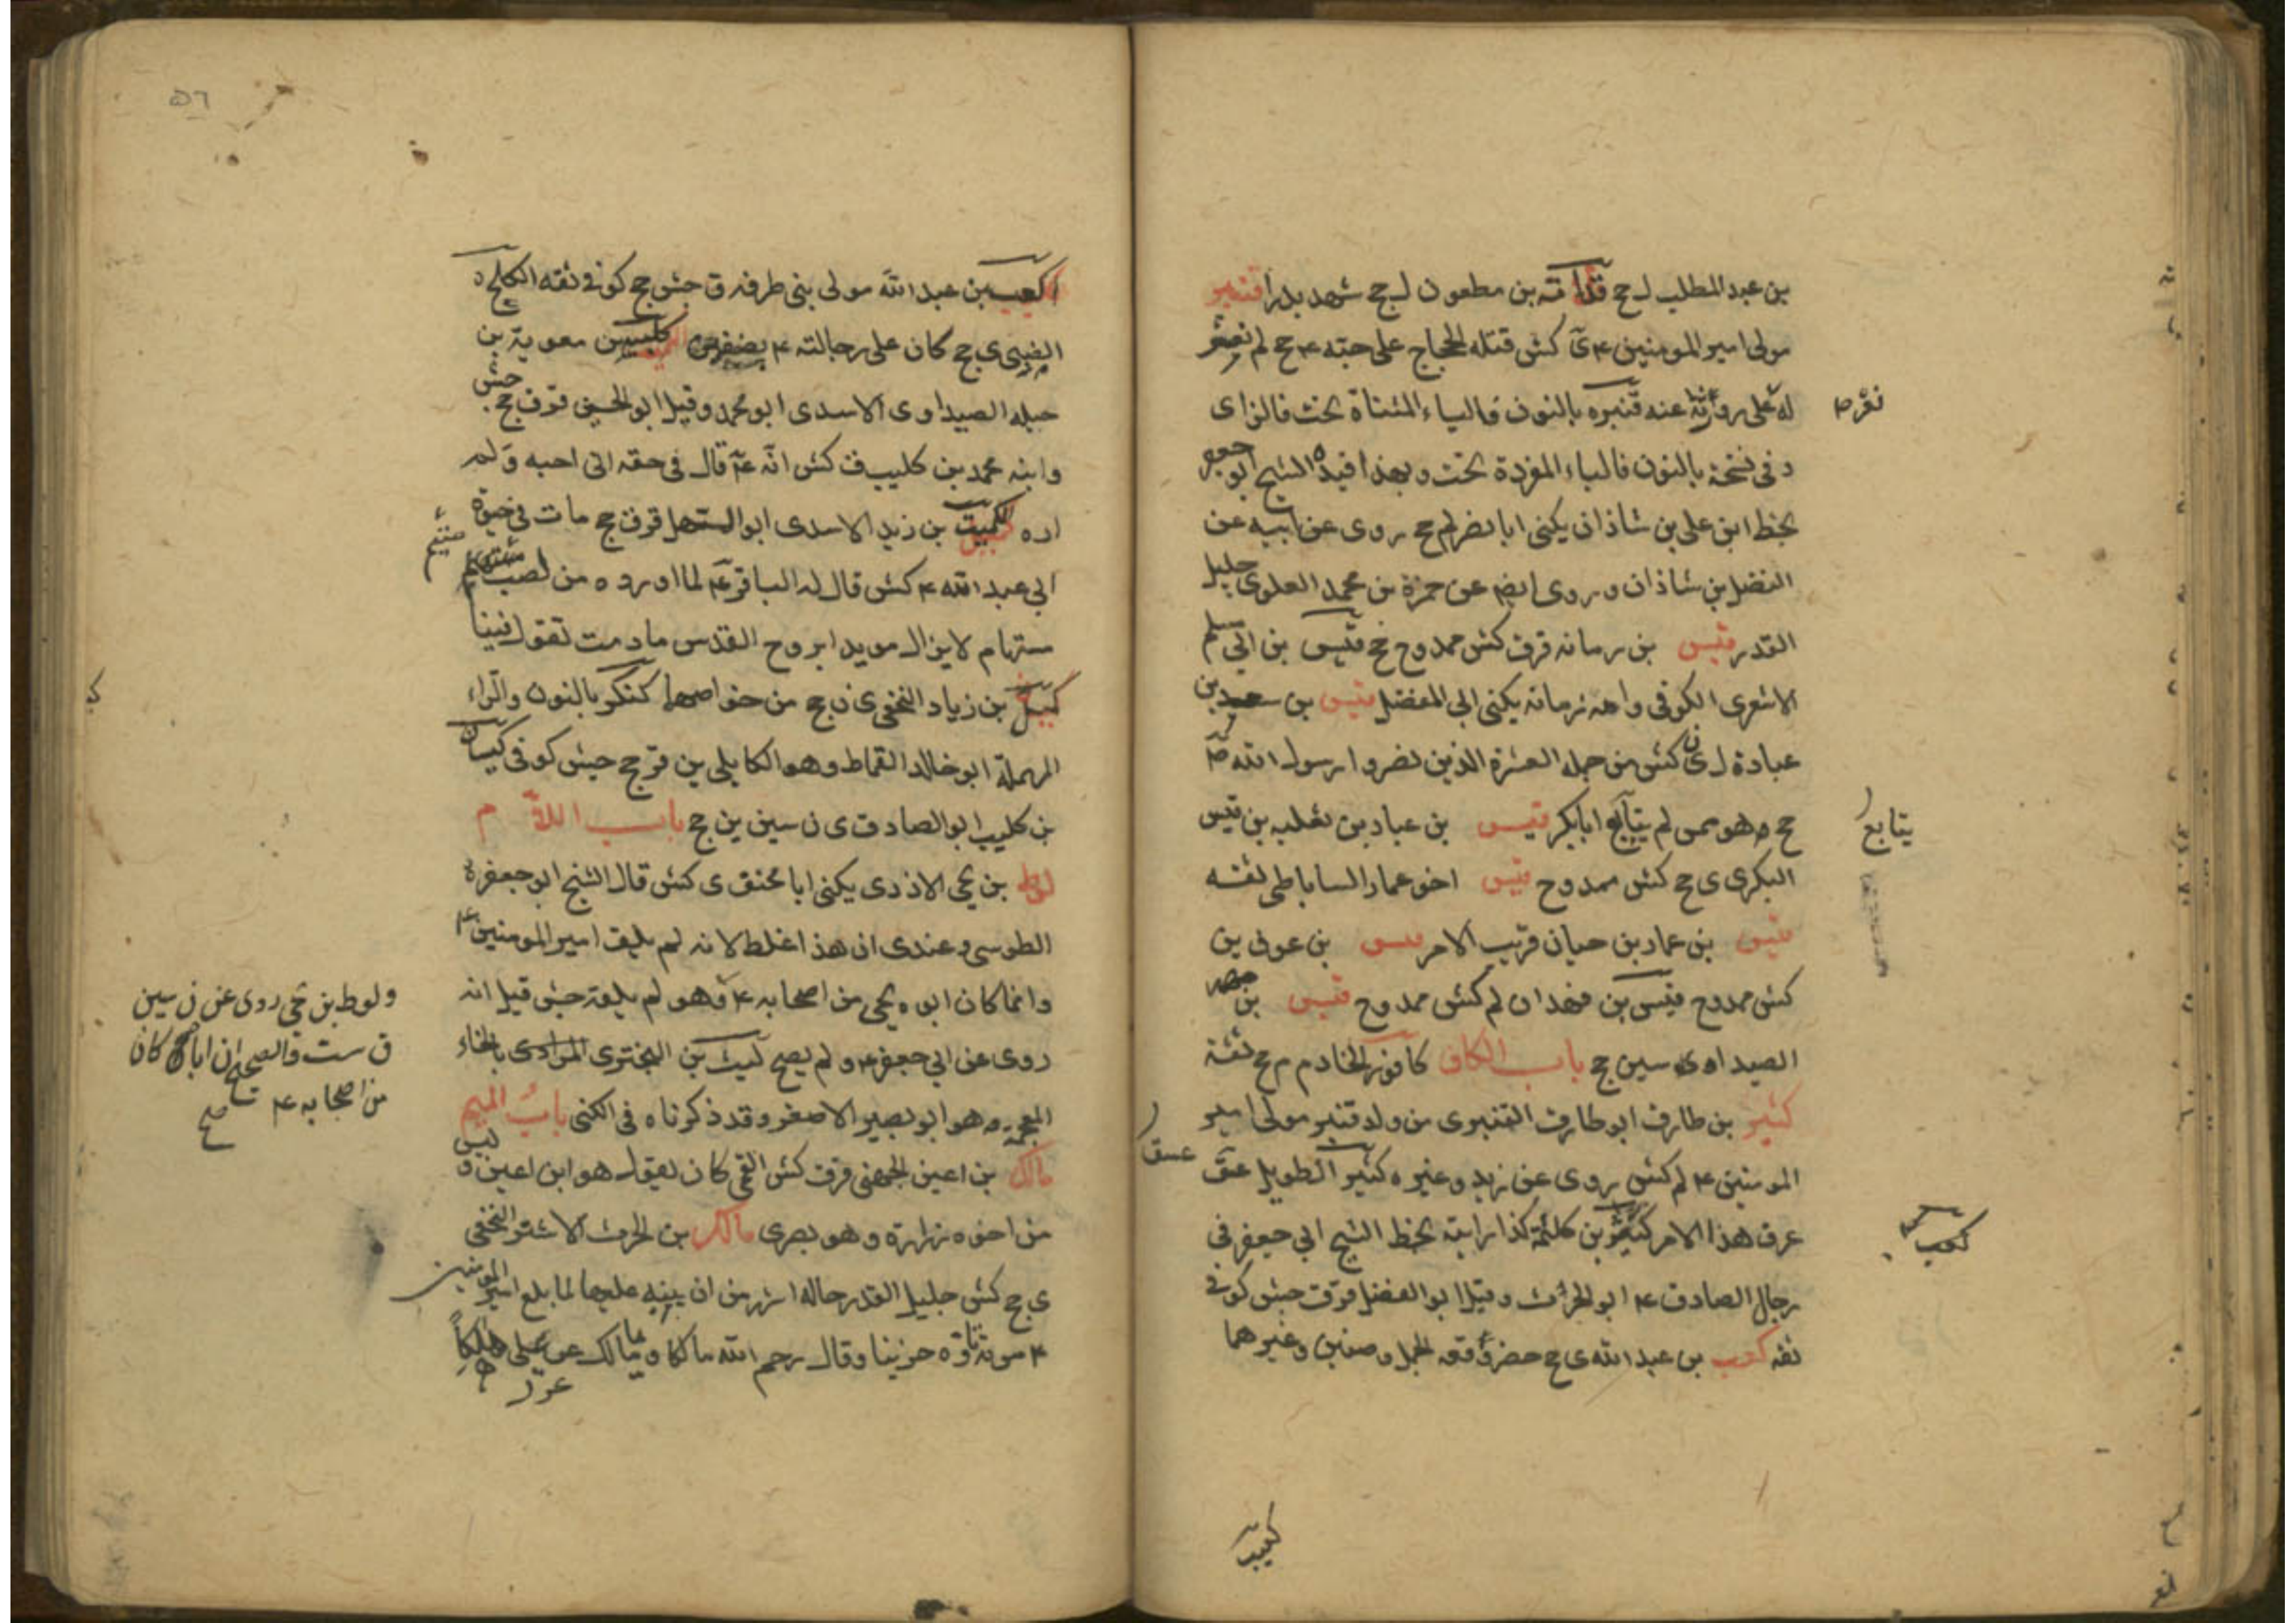 بن عبد المطلب ل جح قدامة بن مطعون ل جح شهد بدرا قنبر
مولى امير المومنين ع ى كش قتله الحجاج على حبه ع جح لم
له على رواية عنه قنبره بالنون فالياء المثناة تحت فالزاى
و فى نسخة بالنون فالباء المفردة تحت و بهذا قيده الشيخ ابو جعفر
بخط ابن على بن شاذان يكنى ابا نصر لم جح روى عن ابيه عن
الفضل بن شاذان و روى ايضا عن حمزة بن محمد العلوى جليل
القدر قيس بن رمانه قر ق كش ممدوح جخ قيس بن ابى مسلم
الاشعرى الكوفى وامه رمانه يكنى ابى المفضل قيس بن سعد بن
عبادة ل ى ن كش من جمله العشرة الذين نصروا رسول الله ص
جح وهو ممن لم يتابع ابابكر قيس بن عباد بن ثعلبه بن قيس
البكرى ى جح كش ممدوح قيس اخو عمار الساباطى ثقه
قيس بن عمار بن حيان قريب الامر قيس بن عوف ين
كش ممدوح قيس بن فهدان لم كش ممدوح قيس بن
الصيداوى سين جح باب الكاف كافور الخادم م جح ثقة
كثير بن طارق ابو طارق القنبرى من ولد قنبر مولى امير
المومنين ع لم كش روى عن زيد وغيره كثير الطويل عق
عرف هذا الامر بن كلثمة كذا رايته بخط الشيخ ابى جعفر فى
رجال الصادق ع ابو الحرث وقيل ابو الفضل قر ق جش كوفى
ثقه كعب بن عبد الله ى جح حضر وقعة الجمل وصفين وغيرهما
نقر ص
يتابع
عسق
كعب
كعيب
٥٦
بن عبد الله مولى بنى طرفه ق جش جح كوفى ثقه
الضبى ى جح كان على رجالته ع كليب بن معوية بن
جبله الصيداوى الاسدى ابو محمد وقيل ابو الحسين قر ق جح جش
وابنه محمد بن كليب ق كش انه ع قال فى حقه انى احبه ولم
اره الكميت بن زيد الاسدى ابو المستهل قر ق جح مات فى حيوة
ابى عبد الله ع كش قال له الباقر ع لما اورده من لصب متيم
مستهام لايزال مويدا بروح القدس مادمت تقول فينا
كميل بن زياد النخعى ى ن جح من خواصهما كنكر بالنون والراء
المهملة ابو خالد القماط وهو الكابلى ين قر جح جش كوفى كيسان
بن كليب ابو الصادق ى ن سين ين جح باب اللام
لوط بن يحيى الازدى يكنى ابا مخنف ى كش قال الشيخ ابو جعفر
الطوسى وعندى ان هذا غلط لانه لم يلق امير المومنين ع
وانما كان ابوه يحيى من اصحابه ع وهو لم يلقه جش قيل انه
روى عن ابى جعفر ع و لم يصح ليث بن البخترى المرادى بالخاء
المعجمة وهو ابو بصير الاصغر وقد ذكرناه فى الكنى باب الميم
مالك بن اعين الجهنى قر ق كش القمى كان يقول هو ابن اعين و ليس
من اخوه زرارة وهو بصرى مالك بن الحرث الاشتر النخعى
ى جح كش جليل القدر حاله اشهر من ان ينبه عليها لما بلغ امير المومنين
ع موته تاوه حزينا وقال رحم الله مالكا وما مالك عز على هالكا
متيم
ولوط بن يحيى روى عن ن سين
ق ست فالصحيح ان اباه كان
من اصحابه ع صح